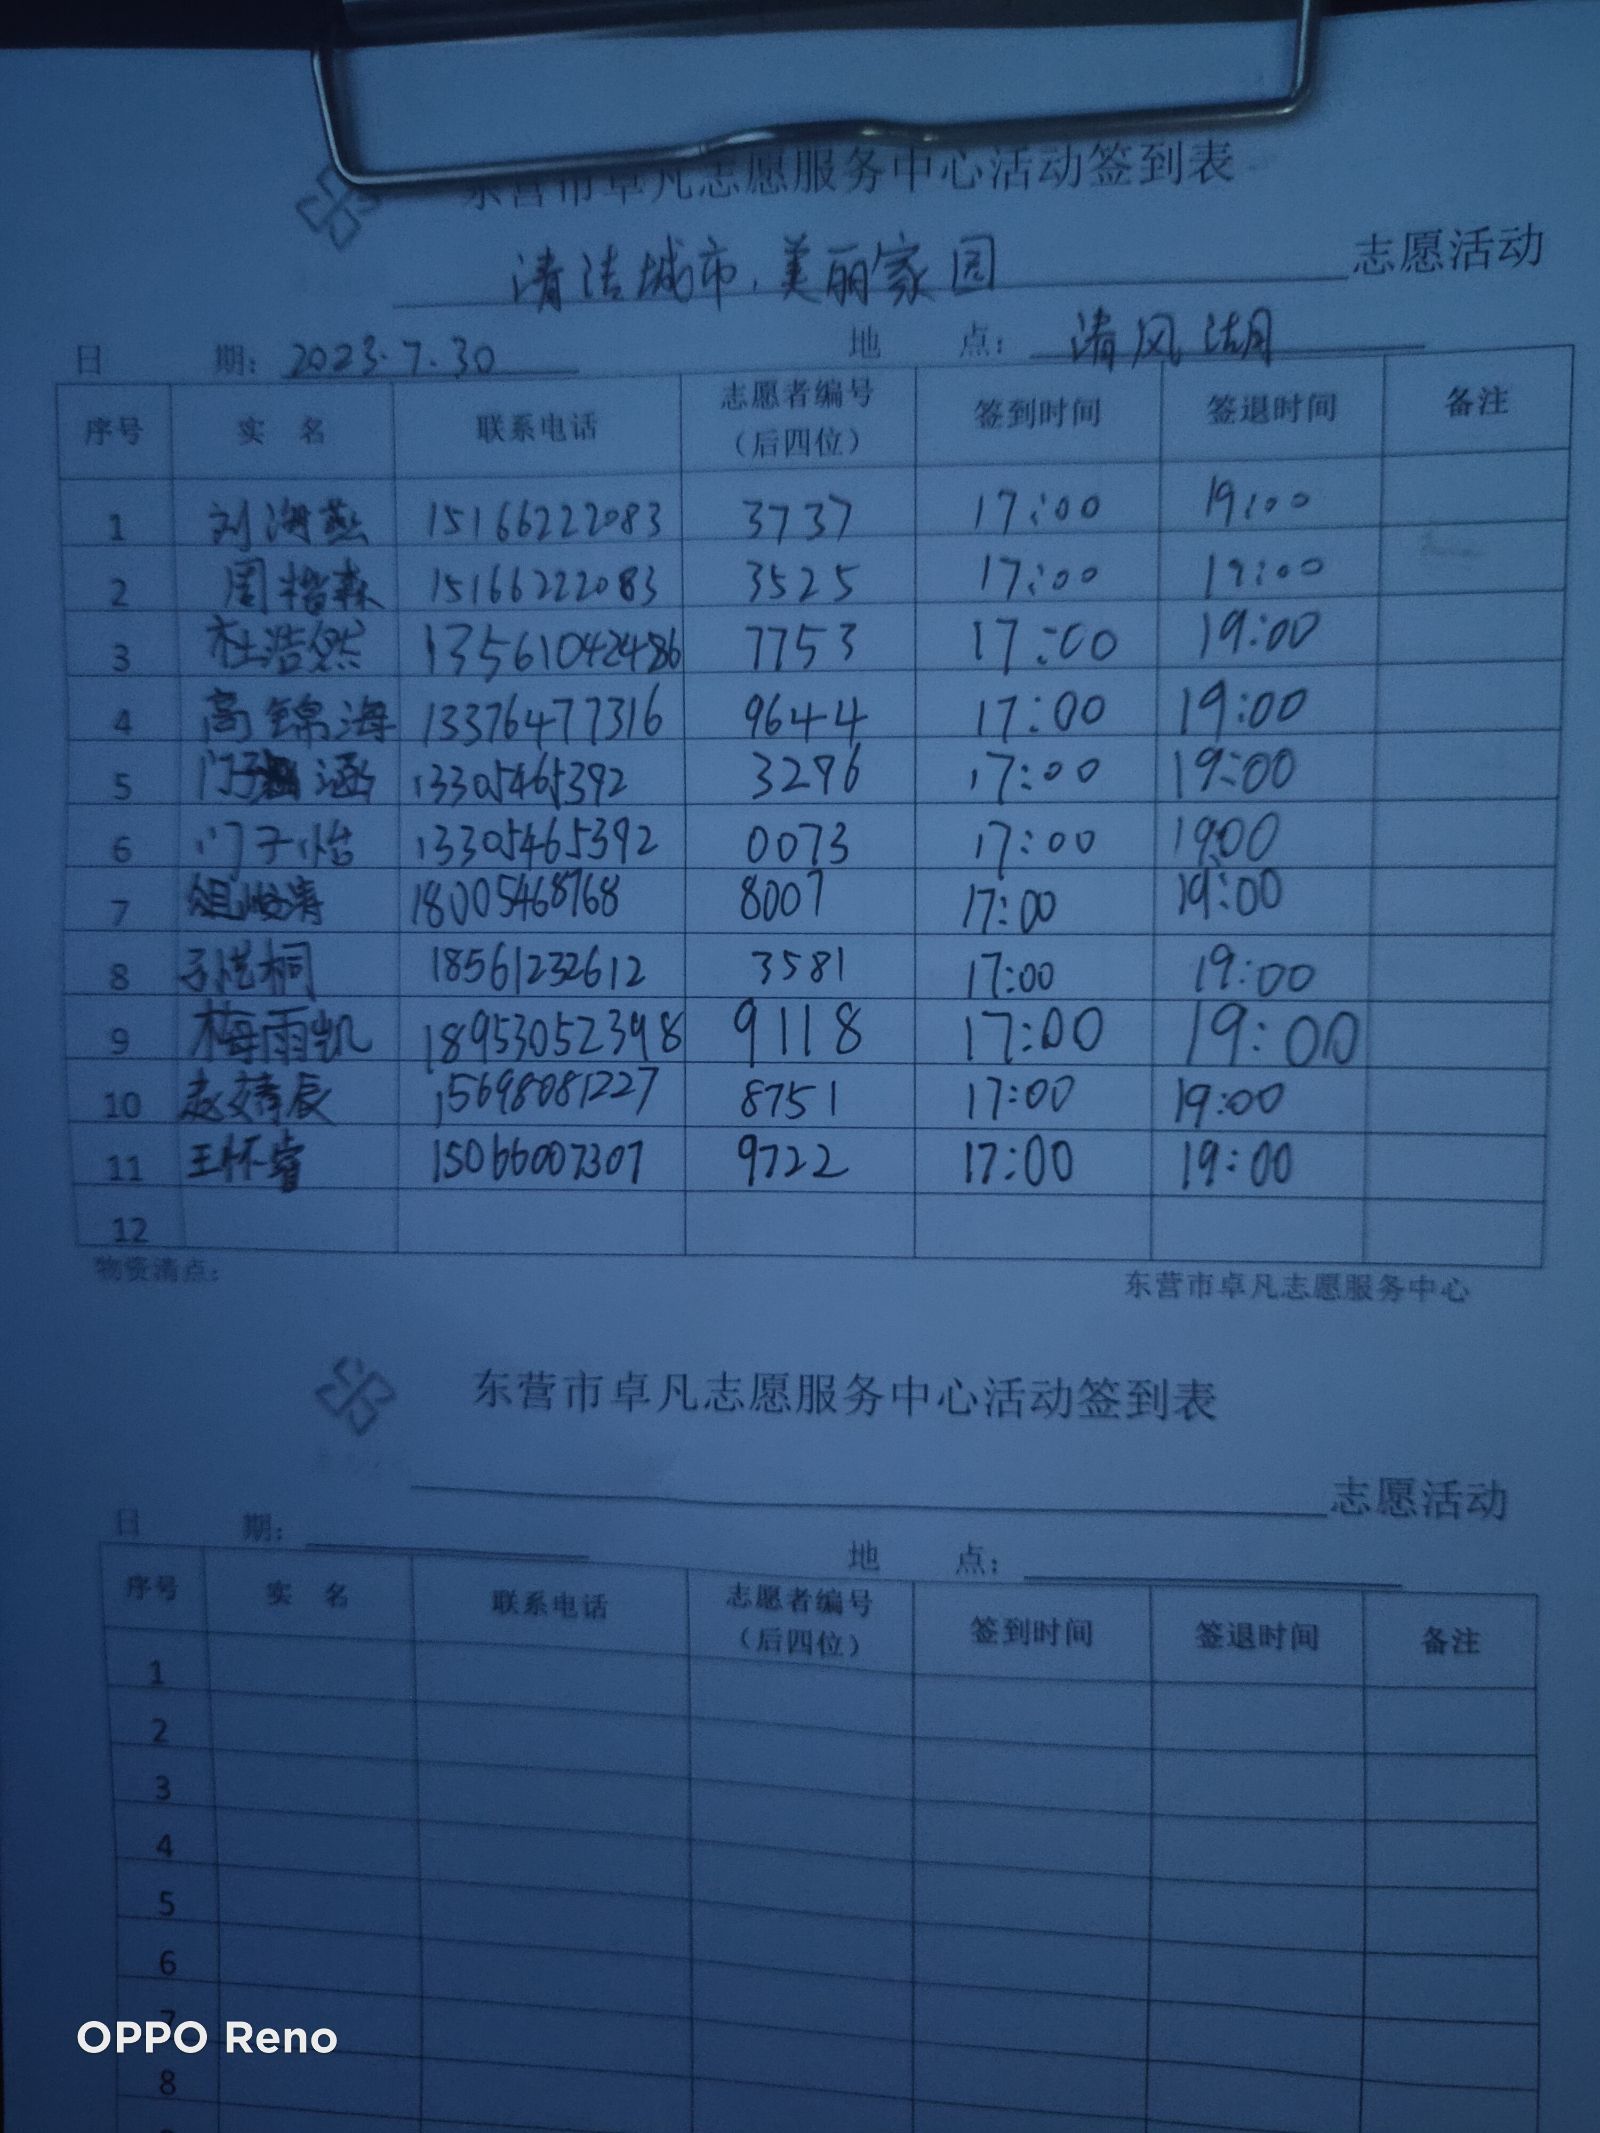 东营市卓凡志愿服务中心活动签到表
清洁城市、美丽家园 志愿活动
日 期: 2023.7.30 地 点: 清风湖
序号 实 名 联系电话 志愿者编号（后四位） 签到时间 签退时间 备注
1 刘海燕 15166222083 3737 17:00 19:00
2 周楷森 15166222083 3525 17:00 19:00
3 杜浩然 13561042486 7753 17:00 19:00
4 高锦海 13376477316 9644 17:00 19:00
5 门子涵 13305465392 3296 17:00 19:00
6 门子怡 13305465392 0073 17:00 19:00
7 18005468768 8007 17:00 19:00
8 桐 18561232612 3581 17:00 19:00
9 梅雨凯 18953052398 9118 17:00 19:00
10 赵婧辰 15698081227 8751 17:00 19:00
11 王怀睿 15066007307 9722 17:00 19:00
12
物资清点: 东营市卓凡志愿服务中心
东营市卓凡志愿服务中心活动签到表
志愿活动
日 期: 地 点:
序号 实 名 联系电话 志愿者编号（后四位） 签到时间 签退时间 备注
1
2
3
4
5
6
7
8
OPPO Reno